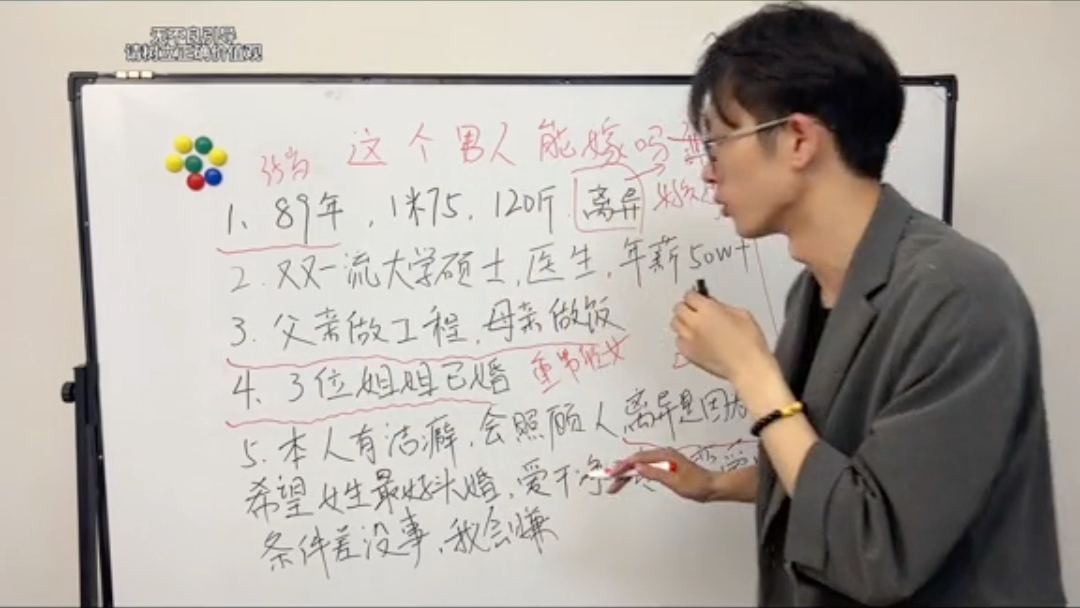 无不良引导
请树立正确价值观
这个男人能嫁吗
35岁
1、89年，1米75，120斤，离异
2. 双双一流大学硕士，医生，年薪50w+
3. 父亲做工程，母亲做饭
4、3位姐姐已婚 重男轻女
5. 本人有洁癖，会照顾人 离异是因为
希望女生最好头婚，爱干净
条件差没事，我会赚